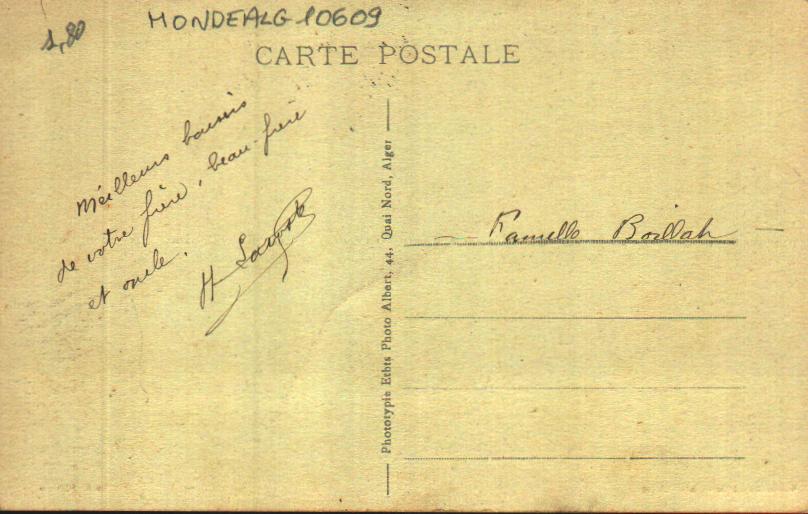 1,80
MONDEALG 10609
CARTE POSTALE
Meilleurs baisers
de votre frère, beau-frère
et oncle.
H
Phototypie Etbts Photo Albert, 44, Quai Nord, Alger
Famille